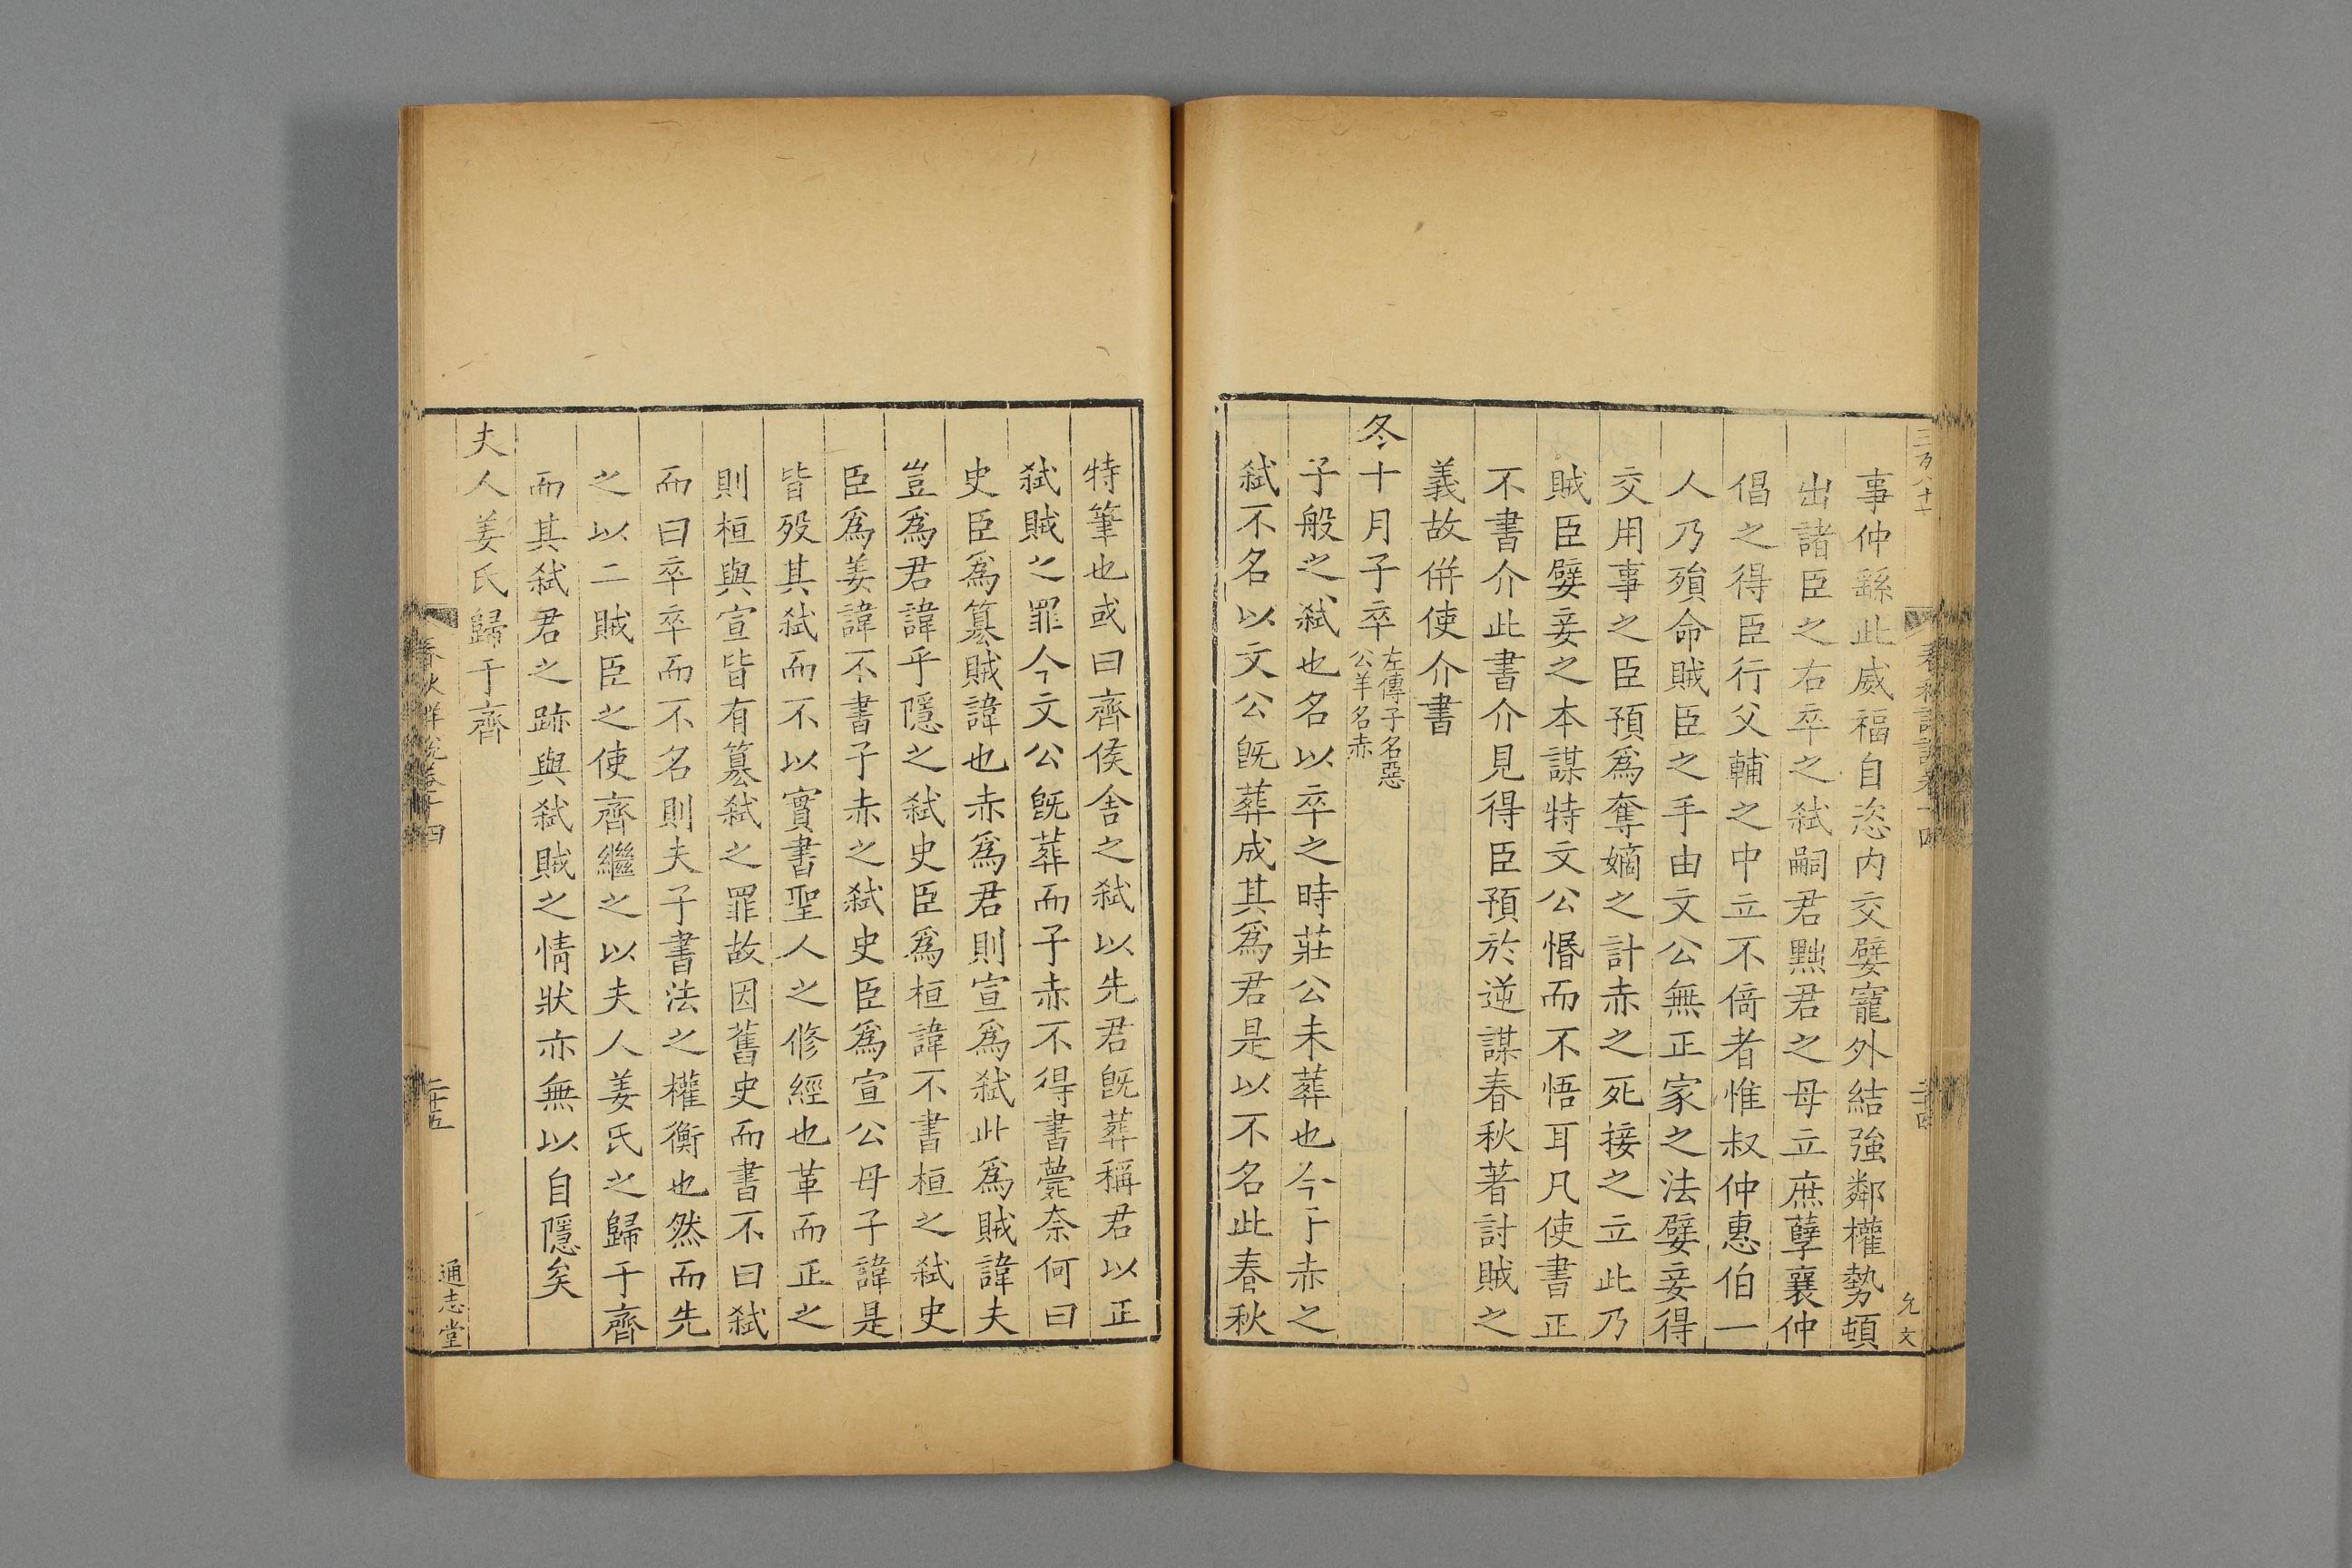 事仲繇此威福自恣内交嬖寵外結強鄰權勢頓
出諸臣之右卒之弑嗣君黜君之母立庶孽襄仲
倡之得臣行父輔之中立不倚者惟叔仲惠伯一
人乃殞命賊臣之手由文公無正家之法嬖妾得
交用事之臣預爲奪嫡之計赤之死接之立此乃
賊臣嬖妾之本謀特文公惛而不悟耳凡使書正
不書介此書介見得臣預於逆謀春秋著討賊之
義故併使介書
冬十月子卒左傳子名惡
公羊名赤
子般之弑也名以卒之時莊公未葬也今子赤之
弑不名以文公旣葬成其爲君是以不名此春秋
特筆也或曰齊侯舍之弑以先君旣葬稱君以正
弑賊之罪今文公旣葬而子赤不得書薨奈何曰
史臣爲簒賊諱也赤爲君則宣爲弑此爲賊諱夫
豈爲君諱乎隱之弑史臣爲桓諱不書桓之弑史
臣爲姜諱不書子赤之弑史臣爲宣公母子諱是
皆歿其弑而不以實書聖人之修經也革而正之
則桓與宣皆有簒弑之罪故因舊史而書不曰弑
而曰卒卒而不名則夫子書法之權衡也然而先
之以二賊臣之使齊繼之以夫人姜氏之歸于齊
而其弑君之跡與弑賊之情狀亦無以自隱矣
夫人姜氏歸于齊
春秋詳說卷十四
二十五
通志堂